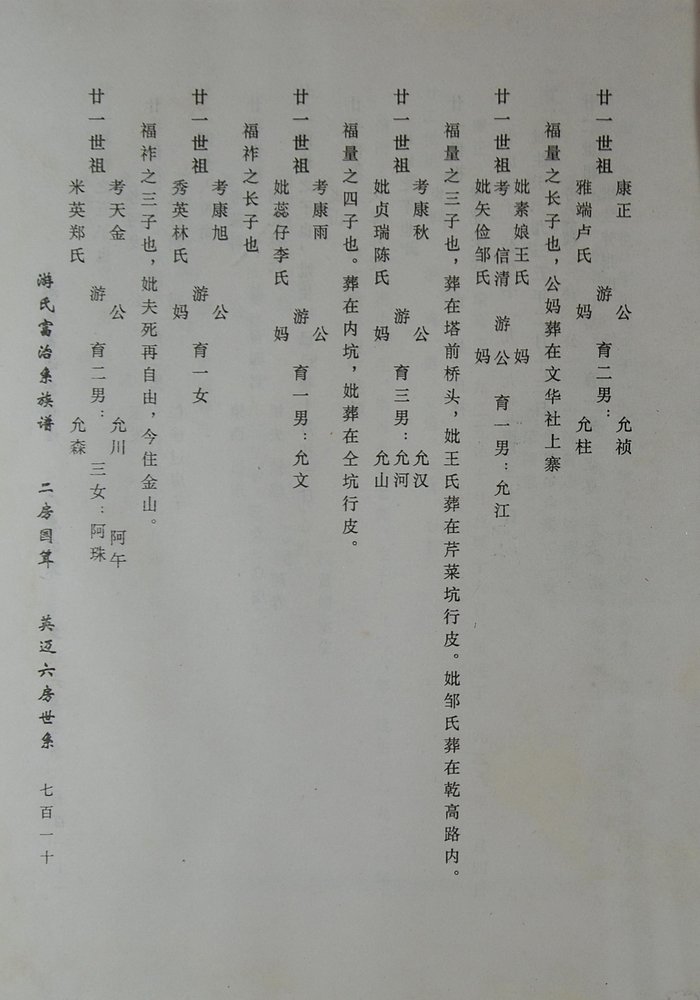 康正 公 允祯
廿一世祖 游 育二男：
雅端卢氏 妈 允柱
福量之长子也，公妈葬在文华社上寨
妣素娘王氏 妈
廿一世祖考 信清 游 公 育一男：允江
妣矢俭邹氏 妈
福量之三子也，葬在塔前桥头，妣王氏葬在芹菜坑行皮。妣邹氏葬在乾高路内。
考康秋 公 允汉
廿一世祖 游 育三男：允河
妣贞瑞陈氏 妈 允山
福量之四子也。葬在内坑，妣葬在仝坑行皮。
考康雨 公
廿一世祖 游 育一男：允文
妣蕊仔李氏 妈
福祚之长子也
考康旭 公
廿一世祖 游 育一女
秀英林氏 妈
福祚之三子也，妣夫死再自由，今住金山。
考天金 公 允川 阿午
廿一世祖 游 育二男： 三女：阿珠
米英郑氏 妈 允森
游氏富治系族谱 二房国算 英迈六房世系 七百一十